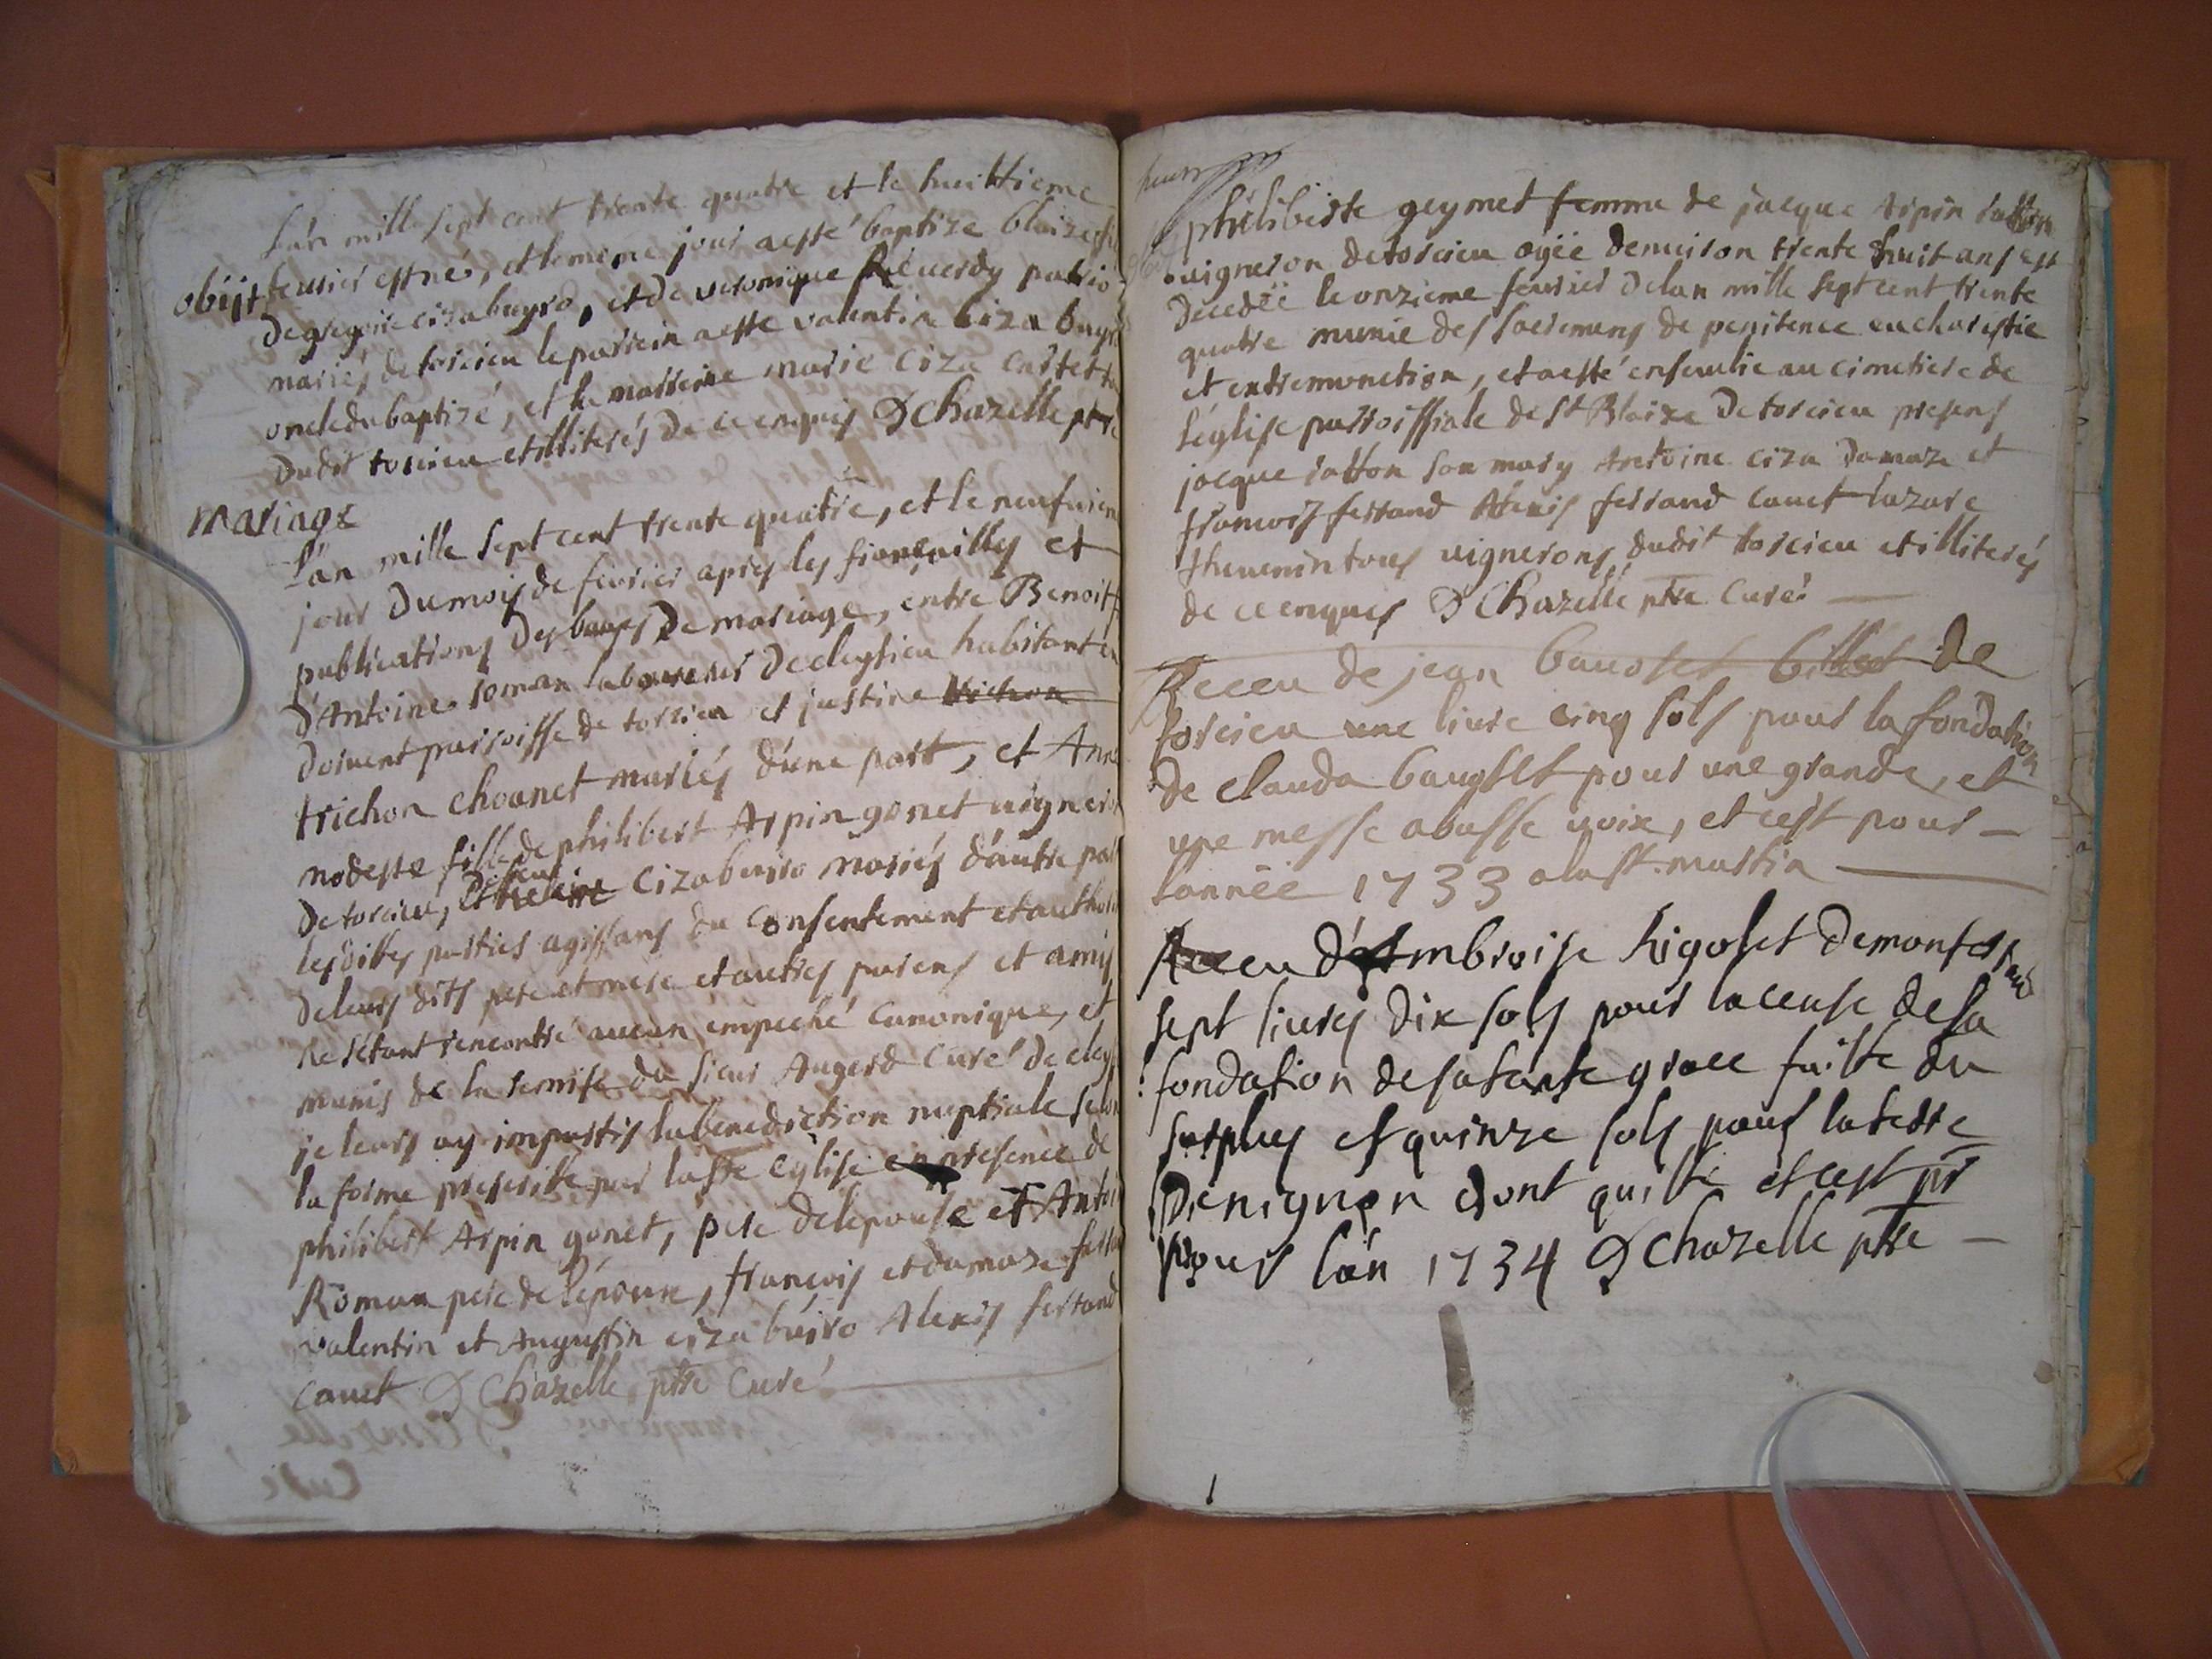 L'an mille sept cent trente quatre et le huittieme
obiit feurier est né, et le meme jour a esté baptize blaize fils
de gregoire ciza buyro, et de veronique Réuerdy
mariés de torcieu le parrein a esté valentin Ciza buyro
oncle du baptizé, et la marreine marie Ciza
dudit torcieu et illiterés de ce enquis D Chazelle ptre
Mariage
L'an mille sept cent trente quatre, et le neufuieme
jour du mois de feurier apres les fiancailles et
publications des bans de mariage, entre Benoit fils
d'Antoine roman laboureur de cleysieu habitant en
dornent parroisse de torcieu et justine trichon
trichon chouanet mariés d'une part, et Anne
modeste fille de philibert Arpin gonet uigneron
de torcieu, et feu Ciza buiro mariés d'autre part
lesdittes parties agissans du consentement et authorité
de leurs dits pere et mere et autres parens et amis
ne s'étant rencontré aucun empeché canonique, et
munis de la remise du sieur Augerd Curé de cleysieu
je leurs ay impartis la benediction nuptiale selon
la forme prescritte par la Ste eglise en presence de
philibert Arpin gonet, pere de lepouse et Antoine
Roman pere de lépoux, francois et damaze ferrand
valentin et Augustin ciza buiro Alexis ferrand
cauet D Chazelle ptre Curé
philiberte geymet femme de jacque Arpin ratton
uigneron de torcieu agée denuiron trente huit ans est
decedée le onzieme feurier de lan mille sept cent trente
quatre munie des sacremens de penitence eucharistie
et extremonction, et a esté enseuelie au cimetiere de
l'église parroissiale de St Blaize de torcieu presens
jacque ratton son mary Antoine ciza damaze et
francois ferrand Alexis ferrand cauet lazare
theuenin tous uignerons dudit torcieu et illiterés
de ce enquis D Chazelle ptre Curé
Receu de jean bauoset billet de
torcieu une liure cinq sols pour la fondation
de clauda baugset pour une grande, et
une messe a basse uoix, et cest pour
lannée 1733 a la st. martin
Receu d'Ambroise Rigolet de montferrand
sept liures dix sols pour la cense de sa
fondation de sa tante grace faitte du
surplus et quinze sols pour la terre
Penignon dont quitte et cest pr
pour l'an 1734 D Chazelle ptre